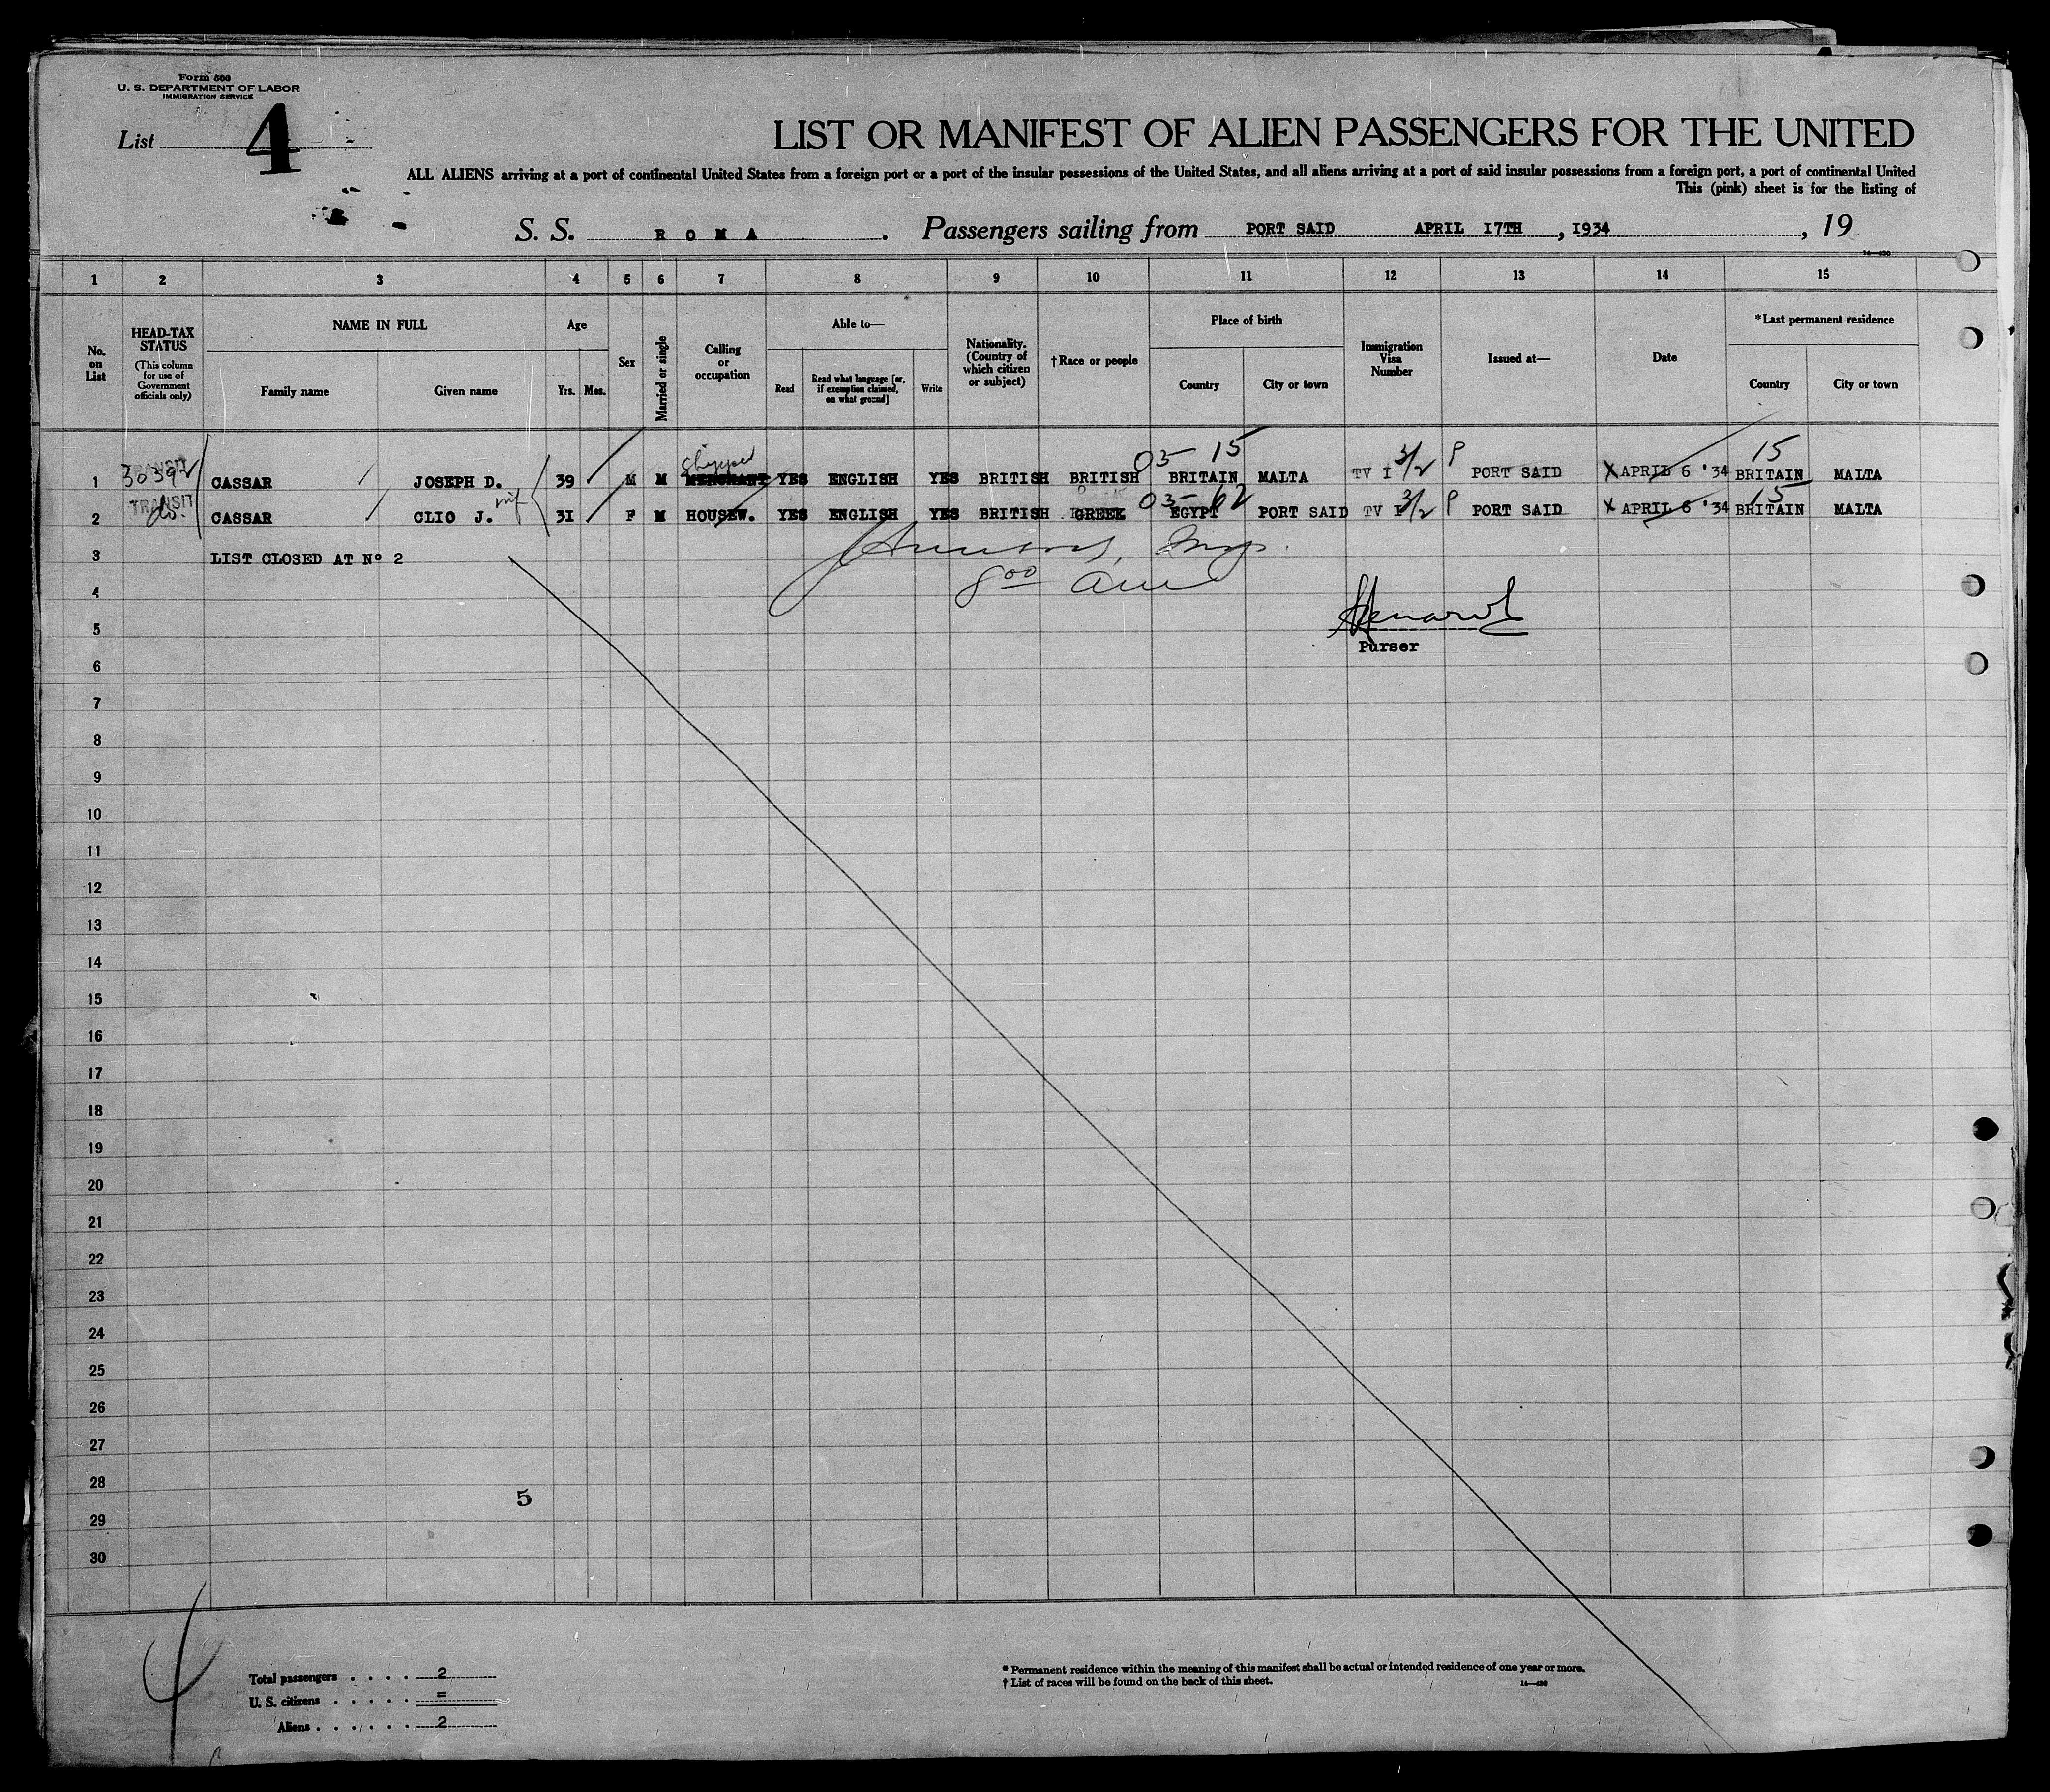 Form 500
U. S. DEPARTMENT OF LABOR
IMMIGRATION SERVICE
List 4
LIST OR MANIFEST OF ALIEN PASSENGERS FOR THE UNITED
ALL ALIENS arriving at a port of continental United States from a foreign port or a port of the insular possessions of the United States, and all aliens arriving at a port of said insular possessions from a foreign port, a port of continental United
This (pink) sheet is for the listing of
S. S. ROMA. Passengers sailing from PORT SAID APRIL 17TH, 1934, 19
14—430
1 2 3 4 5 6 7 8 9 10 11 12 13 14 15
No. on List
HEAD-TAX STATUS
(This column for use of Government officials only)
NAME IN FULL
Family name
Given name
Age
Yrs. Mos.
Sex
Married or single
Calling or occupation
Able to—
Read
Read what language [or, if exemption claimed, on what ground]
Write
Nationality. (Country of which citizen or subject)
†Race or people
Place of birth
Country
City or town
Immigration Visa Number
Issued at—
Date
*Last permanent residence
Country
City or town
03-15 15
1 TRANSIT 30392 CASSAR JOSEPH D. 39 M M MERCHANT YES ENGLISH YES BRITISH BRITISH BRITAIN MALTA TV I 3/2 P PORT SAID X APRIL 6 '34 BRITAIN MALTA
03-62 15
2 TRANSIT do. CASSAR CLIO J. wif 31 F M HOUSEW. YES ENGLISH YES BRITISH GREEK EGYPT PORT SAID TV I 3/2 P PORT SAID X APRIL 6 '34 BRITAIN MALTA
3 LIST CLOSED AT Nº 2
8 00 am
4
5
Purser
6
7
8
9
10
11
12
13
14
15
16
17
18
19
20
21
22
23
24
25
26
27
28
5
29
30
4
Total passengers . . . . 2
U. S. citizens . . . . . =
Aliens . . . . . . 2
* Permanent residence within the meaning of this manifest shall be actual or intended residence of one year or more.
† List of races will be found on the back of this sheet.
14—430